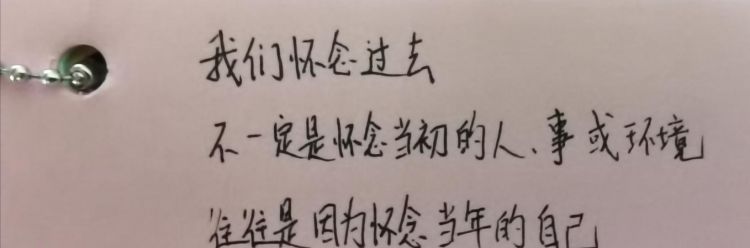 我们怀念过去
不一定是怀念当初的人、事或环境
往往是因为怀念当年的自己